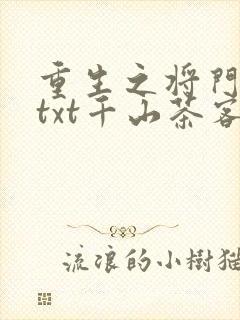 重生之将門
txt千山茶客
流浪的小樹猫